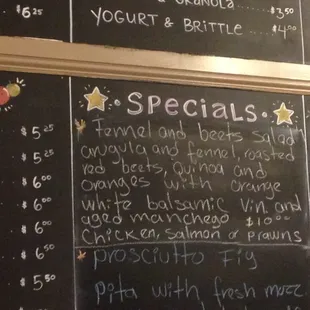 $6.25
& GRANOLA $3.50
YOGURT & BRITTLE $4.00
SPECIALS
$5.25
$5.25
$6.00
$6.00
$6.00
$6.50
$5.50
Fennel and beets salad
arugula and fennel, roasted
red beets, Quinoa and
oranges with orange
white balsamic vin and
aged manchego $10.00
Chicken, Salmon or Prawns
Prosciutto Fig
pita with fresh mozz.